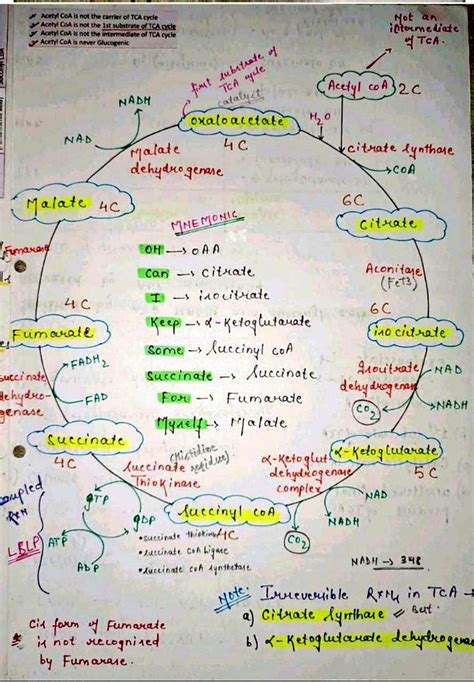 Acetyl CoA is not the carrier of TCA cycle
Acetyl CoA is not the 1st substrate of TCA cycle
Acetyl CoA is not the intermediate of TCA cycle
Acetyl CoA is never Glucogenic
Not an
intermediate
of TCA.
first substrate of
TCA cycle
catalyst
Acetyl CoA 2C
NADH
oxaloacetate
4C
H2O
NAD
Malate
dehydrogenase
Citrate Synthase
COA
Malate 4C
6C
Citrate
MNEMONIC
OH → OAA
Can → Citrate
I → isocitrate
Keep → α-Ketoglutarate
Some → Succinyl CoA
Succinate → Succinate
For → Fumarate
Myself → Malate
Fumarase
Aconitase
(Fe+3)
4C
Fumarate
6C
isocitrate
FADH2
FAD
succinate
dehydro-
genase
Isocitrate
dehydrogenase
NAD
CO2
NADH
Succinate
4C
(Histidine
residue)
Succinate
Thiokinase
α-Ketoglut
dehydrogenase
complex
α-Ketoglutarate
5C
NAD
NADH
CO2
Succinyl CoA
4C
coupled
Rxn
GTP
GDP
SLBLP
ATP
ADP
• succinate thiokin
• succinate CoA ligase
• succinate CoA synthetase
NADH → 340
Note: Irreversible Rxn in TCA →
a) Citrate Synthase
Best
b) α-Ketoglutarate dehydrogenas
* Cis form of Fumarate
is not recognised
by Fumarase.